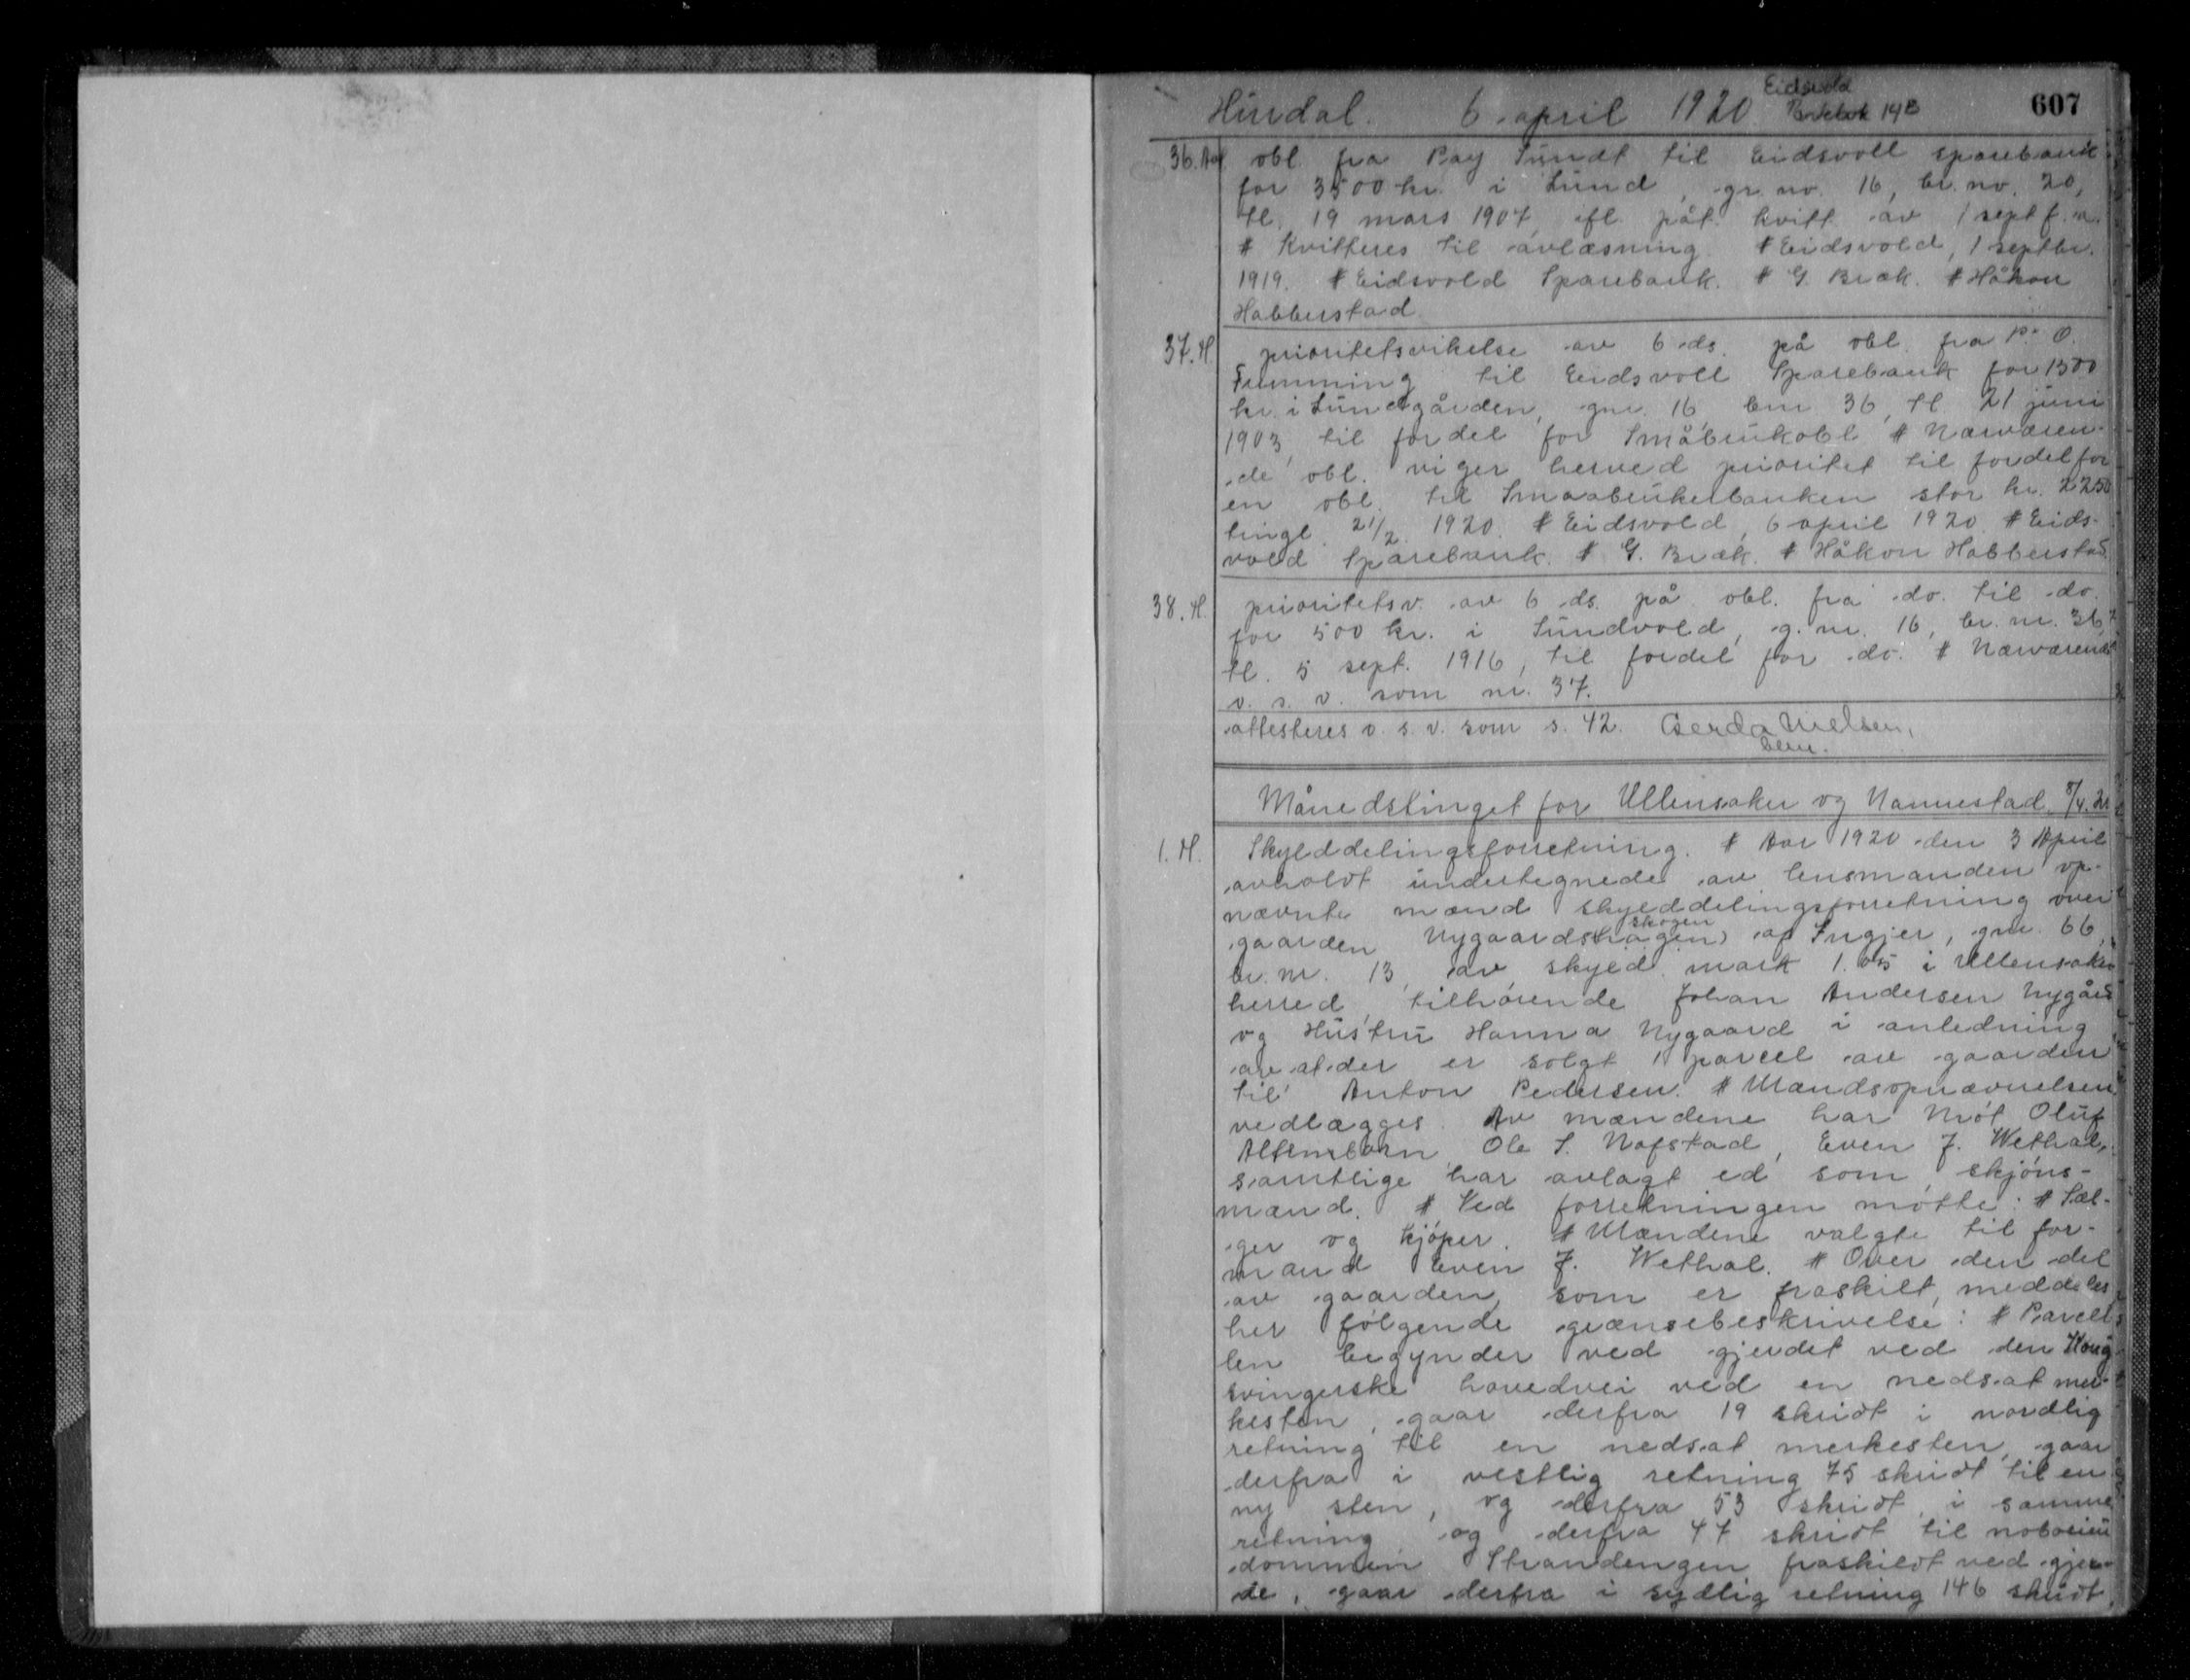 Hurdal. 6 april 1920 Eidsvold
Pantebok 14B
607
36. Avl. obl. fra Ray Sundt til Eidsvoll sparebank
for 3500 kr. i Lund, gr. no. 16, br. no. 20,
tl. 19 mars 1907, ifl. påt. kvitt. av 1 sept f. a.
# Kvitteres til avlæsning. # Eidsvold, 1 septbr.
1919. # Eidsvold Sparebank. # G. Bræk. # Håkon
Habberstad.
37. H. prioritetsvikelse av 6 ds. på obl. fra P. O.
Fumming til Eidsvoll Sparebank for 1500
kr. i Lundgården, gnr. 16, bnr 36, tl. 21 juni
1903, til fordel for Småbrukobl. # Nærværen-
de obl. viger herved prioritet til fordel for
en obl. til Smaabrukerbanken stor kr. 2250
tingl. 21/2 1920. # Eidsvold, 6 april 1920. # Eids-
vold Sparebank. # G. Bræk. # Håkon Habberstad.
38. H. prioritetsv. av 6 ds. på obl. fra do. til do.
for 500 kr. i Sundvold, g. nr. 16, br. nr. 36,
tl. 5 sept. 1916, til fordel for do. # Nærværende
o. s. v. som nr. 37.
attesteres o. s. v. som s. 42. Gerda Nielsen,
bem.
Månedstinget for Ullensaker og Nannestad 8/4. 20
1. H. Skylddelingsforretning. # Aar 1920 den 3 April
avholdt undertegnede av lensmanden op-
nævnte mænd skylddelingsforretning over
skogen
gaarden Nygaardshagen) af Ingjer, gnr. 66,
br. nr. 13, av skyld mark 1.05 i Ullensaker
herred, tilhørende Johan Andersen Nygård
og Hustru Hanna Nygaard i anledning
av at der er solgt 1 parcel av gaarden
til Anton Pedersen. # Mandsopnævnelsen
vedlægges. Av mændene har møt Oluf
Alternborn, Ole S. Nafstad, Even J. Wethal,
samtlige har avlagt ed som skjøns-
mænd. # Ved forretningen møtte: # Sæl-
ger og kjøper. # Mændene valgte til for-
mand Even J. Wethal. # Over den del
av gaarden som er fraskilt, meddeles
her følgende grænsebeskrivelse: # Parcel-
len begynder ved gjerdet ved den Kong-
svingerske hovedvei ved en nedsat mer-
kesten, gaar derfra 19 skridt i nordlig
retning til en nedsat merkesten, gaar
derfra i vestlig retning 75 skridt til en
ny sten, og derfra 53 skridt i samme
retning og derfra 47 skridt til naboeien-
dommen Strandengen fraskildt ved gjer-
de, gaar derfra i sydlig retning 146 skridt,